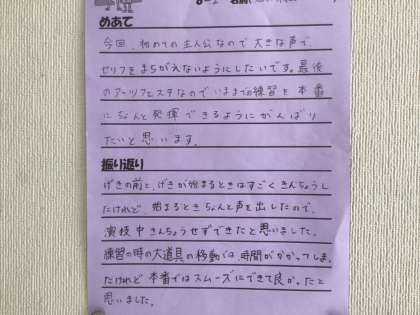 めあて
今回、初めての主人公なので大きな声で、
セリフをまちがえないようにしたいです。最後
のアーツフェスタなのでいままでの練習を本番
にちゃんと発揮できるようにがんばり
たいと思います。
振り返り
げきの前と、げきが始まるときはすごくきんちょうし
たけれど、始まるときちゃんと声を出したので、
演技中きんちょうせずできたと思いました。
練習の時の大道具の移動では、時間がかかってしま
たけれど本番ではスムーズにできて良かったと
思いました。